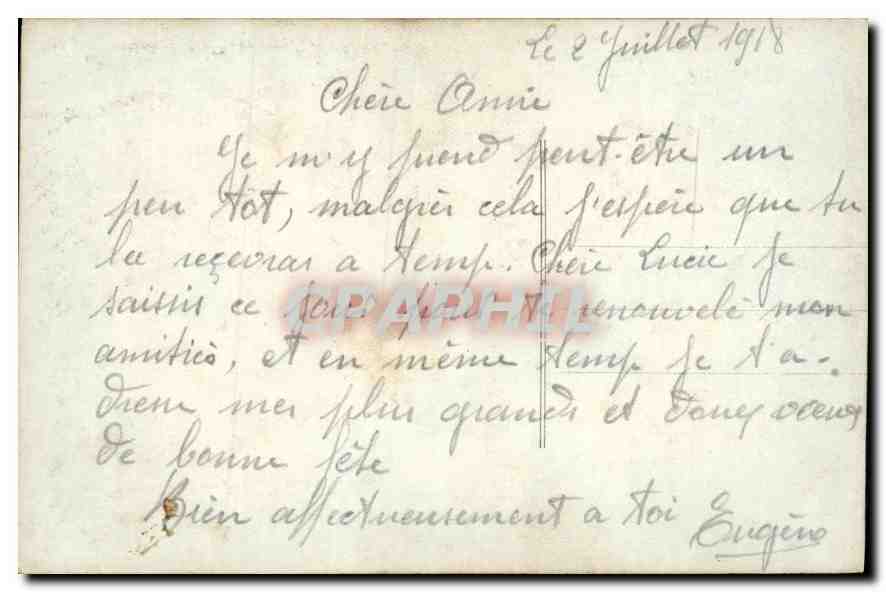 Le 2 Juillet 1918
Chère Amie
Je m'y prend peut-être un
peu tôt, malgrés cela j'espère que tu
la reçevras a temp. Chère Lucie je
saisis ce jour pour te renouvelé mon
amitiés, et en même temp je t'a-
dresse mes plus grands et doux voeux
de bonne fête
Bien affectueusement a toi
Eugène
CPAPHIL